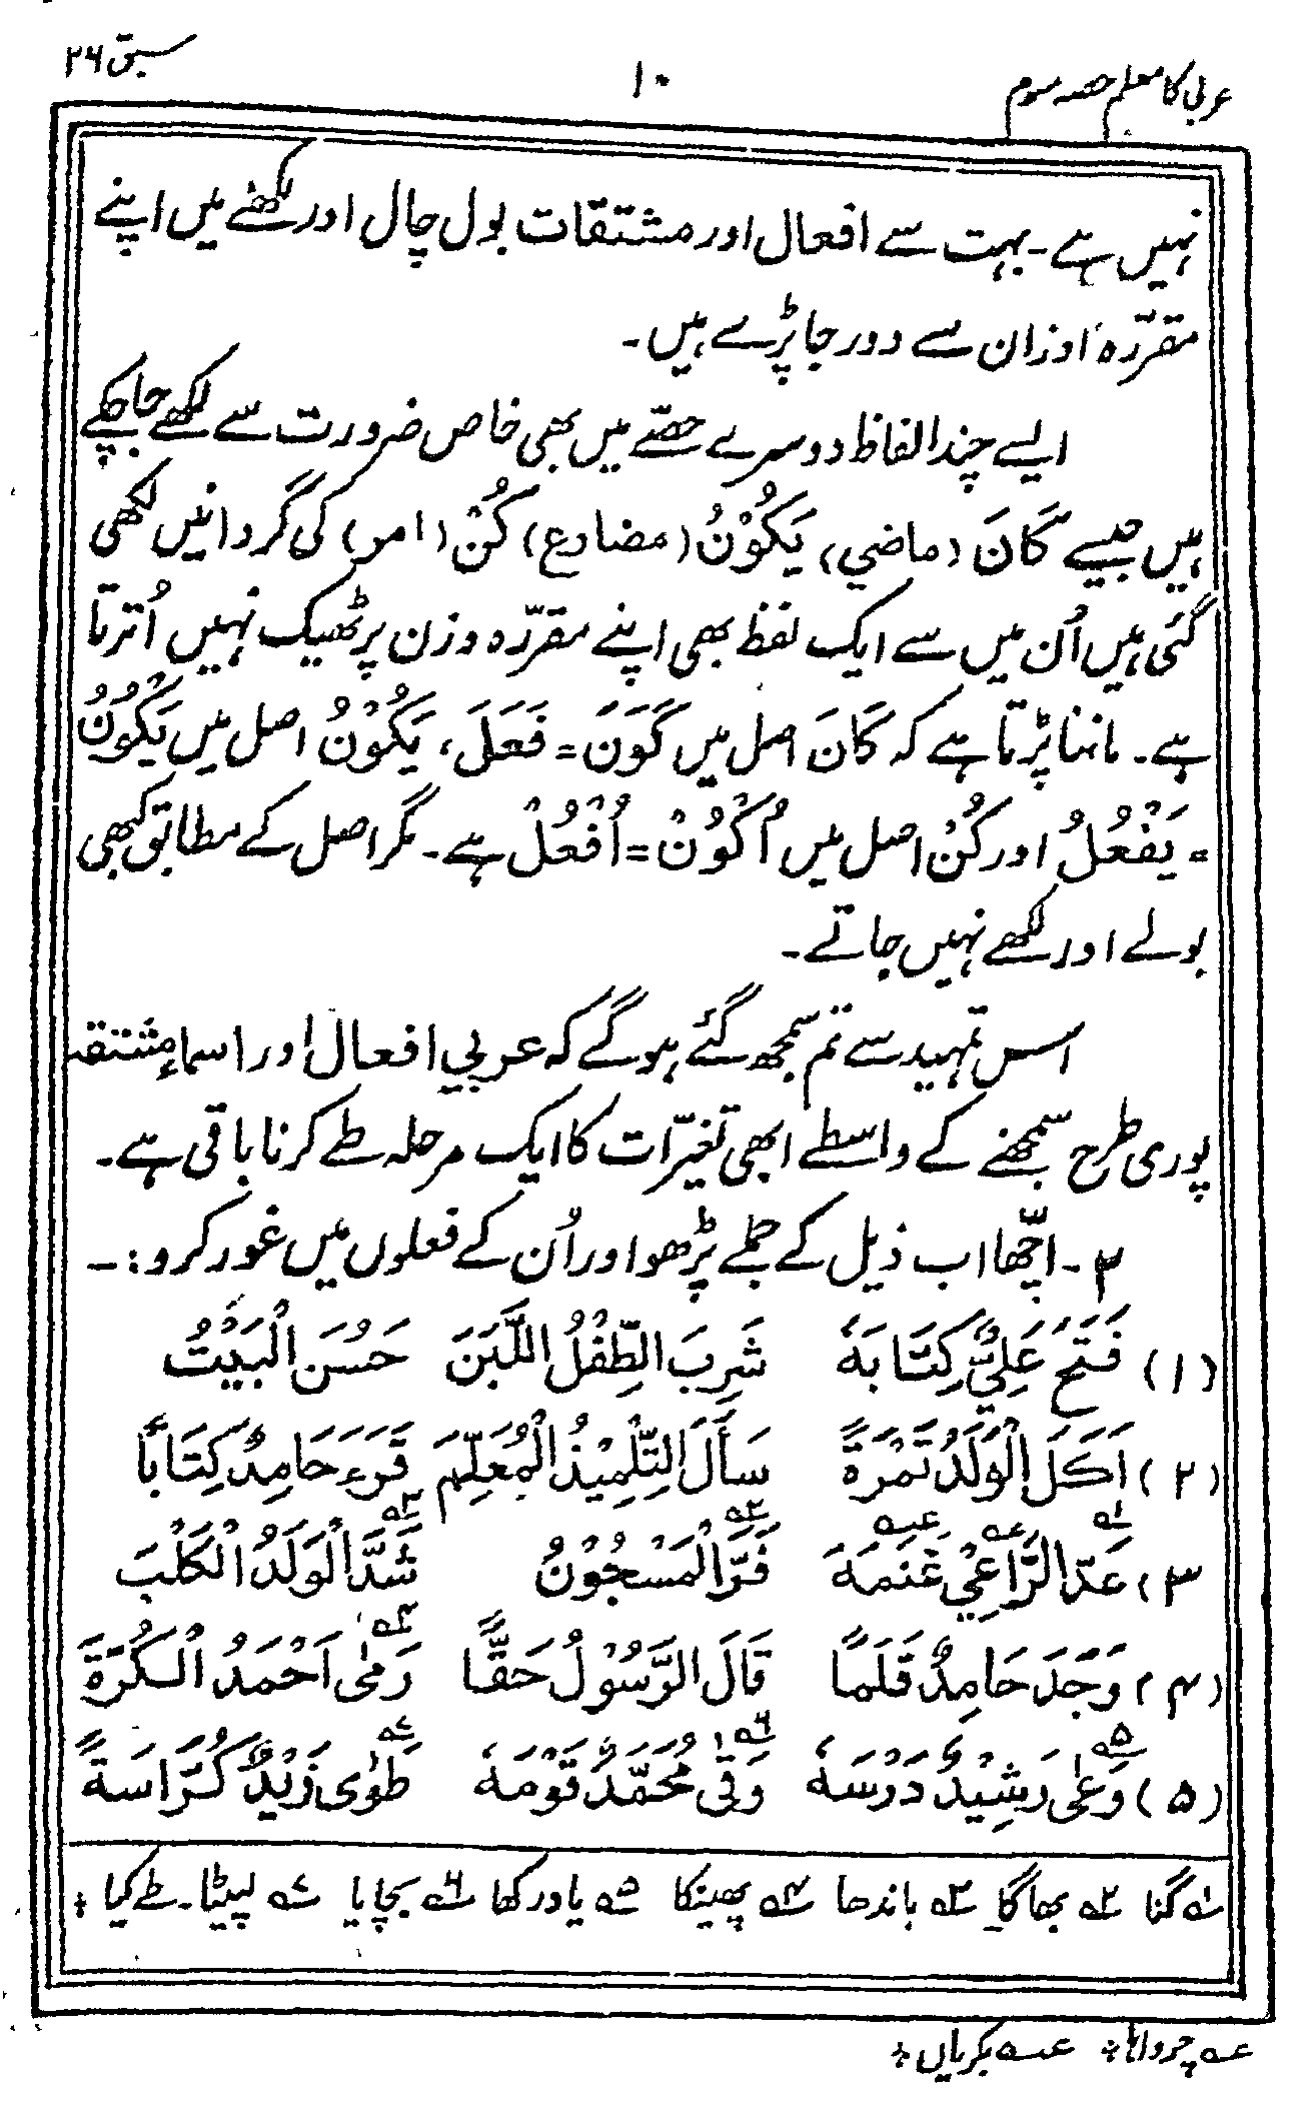 عربی کا معلم حصہ سوم ۱۰ سبق ۲۶
نہیں ہے۔ بہت سے افعال اور مشتقات بول چال اور لکھنے میں اپنے
مقرّرہ اوزان سے دور جا پڑے ہیں۔
ایسے چند الفاظ دوسرے حصّے میں بھی خاص ضرورت سے لکھے جا چکے
ہیں جیسے كَانَ (ماضي)، يَكُوْنُ (مضارع) كُنْ (امر) کی گردانیں لکھی
گئی ہیں اُن میں سے ایک لفظ بھی اپنے مقرّرہ وزن پر ٹھیک نہیں اُترتا
ہے۔ ماننا پڑتا ہے کہ كَانَ اصل میں كَوَنَ = فَعَلَ، يَكُوْنُ اصل میں يَكْوُنُ
= يَفْعُلُ اور كُنْ اصل میں اُكْوُنْ = اُفْعُلْ ہے۔ مگر اصل کے مطابق کبھی
بولے اور لکھے نہیں جاتے۔
اس تمہید سے تم سمجھ گئے ہوگے کہ عربي افعال اور اسماءِ مشتقہ
پوری طرح سمجھنے کے واسطے ابھی تغیّرات کا ایک مرحلہ طے کرنا باقی ہے۔
۲۔ اچّھا اب ذیل کے جملے پڑھو اور اُن کے فعلوں میں غور کرو:۔
(۱) فَتَحَ عَلِيٌّ كِتَابَهٗ شَرِبَ الطِّفْلُ اللَّبَنَ حَسُنَ الْبَيْتُ
(۲) اَكَلَ الْوَلَدُ تَمْرَةً سَأَلَ التِّلْمِيْذُ الْمُعَلِّمَ قَرَءَ حَامِدٌ كِتَابًا
(۳) عَدَّ۱ الرَّاعِيْ؏ غَنَمَهٗ؏؏ فَرَّ۲ الْمَسْجُوْنُ شَدَّ۳ الْوَلَدُ الْكَلْبَ
(۴) وَجَدَ حَامِدٌ قَلَمًا قَالَ الرَّسُوْلُ حَقًّا رَمٰى۴ اَحْمَدُ الْكُرَةَ
(۵) وَعٰى۵ رَشِيْدٌ دَرْسَهٗ وَقٰى۶ مُحَمَّدٌ قَوْمَهٗ طَوٰى۷ زَيْدٌ كُرَّاسَةً
۱ گنا ۲ بھاگا ۳ باندھا ۴ پھینکا ۵ یاد رکھا ۶ بچایا ۷ لپیٹا۔ طے کیا ÷
؏ چرواہا ÷ ؏؏ بکریاں ÷